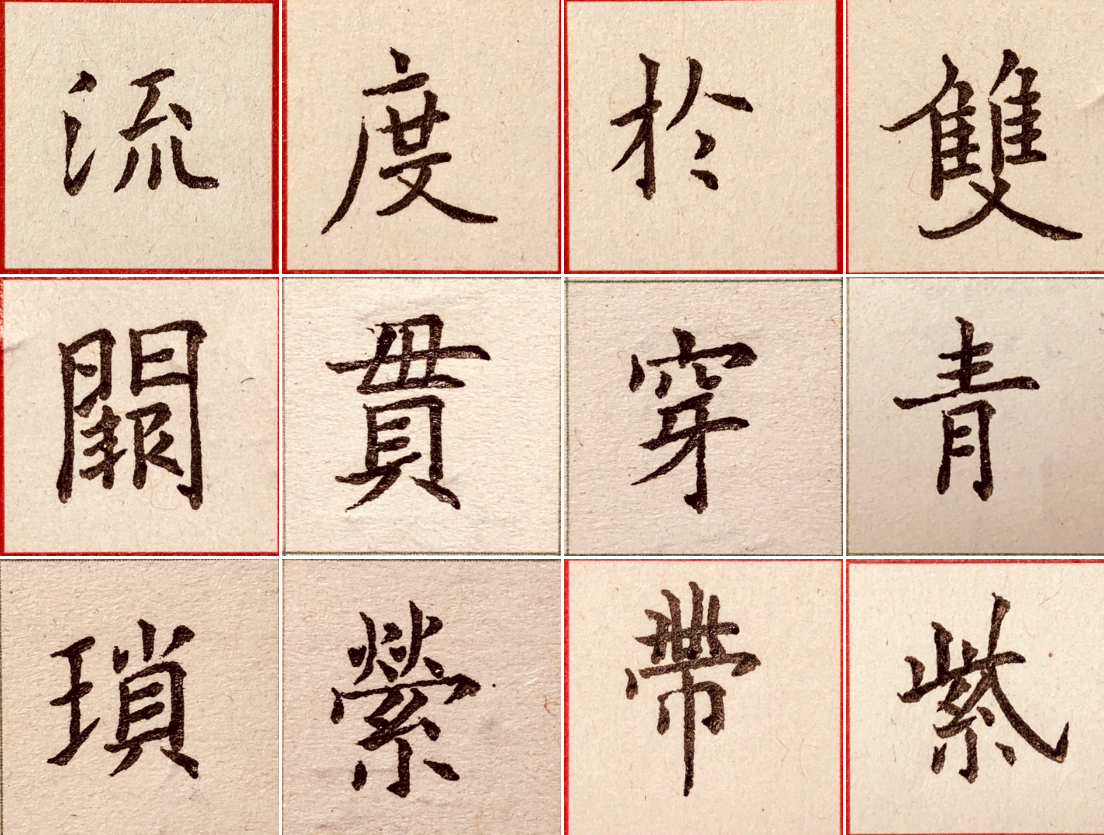 流度於雙
闕貫穿青
瑣縈帶紫